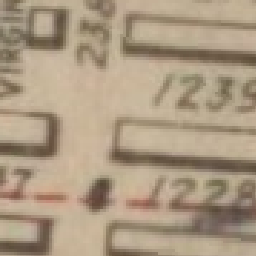 VIRGIN
238
1239
47
1228